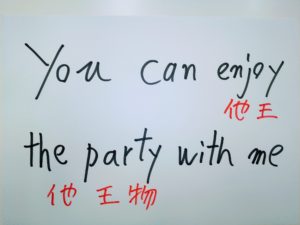 You can enjoy
他王
the party with me
他王物